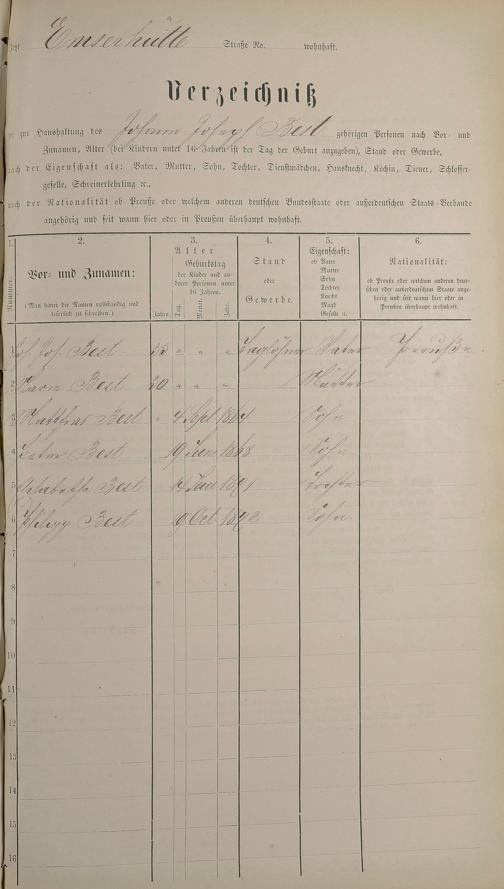 Jetzt Emserhütte Straße No. wohnhaft.
Verzeichniß
zur Haushaltung des Johann Joseph Best gehörigen Personen nach Vor- und
Zunamen, Alter (bei Kindern unter 16 Jahren ist der Tag der Geburt anzugeben), Stand oder Gewerbe,
nach der Eigenschaft als: Vater, Mutter, Sohn, Tochter, Dienstmädchen, Hausknecht, Köchin, Diener, Schlosser-
geselle, Schreinerlehrling ꝛc.,
nach der Nationalität ob Preuße oder welchem anderen deutschen Bundesstaate oder außerdeutschen Staats-Verbande
angehörig und seit wann hier oder in Preußen überhaupt wohnhaft.
1. 2. 3. 4. 5. 6.
Nummer.
Vor- und Zunamen:
(Man bittet die Namen vollständig und
leserlich zu schreiben.)
Alter
Geburtstag
der Kinder und an-
deren Personen unter
16 Jahren.
Jahre. Tag. Monat. Jahr.
Stand
oder
Gewerbe.
Eigenschaft:
ob Vater
Mutter
Sohn
Tochter
Knecht
Magd
Geselle ꝛc.
Nationalität:
ob Preuße oder welchem anderen deut-
schen oder außerdeutschen Staate ange-
hörig und seit wann hier oder in
Preußen überhaupt wohnhaft.
1 Joh Jos Best 35 " " " Taglöhner Vater Preuße
2 Best " " " Mutter
3 Matthias Best " 4 Sept 1864 Sohn
4 Best 19 Juni 1868 Sohn
5 Elisabetha Best Jan 1871 Tochter
6 Philipp Best 9 Oct 1872 Sohn
7
8
9
10
11
12
13
14
15
16